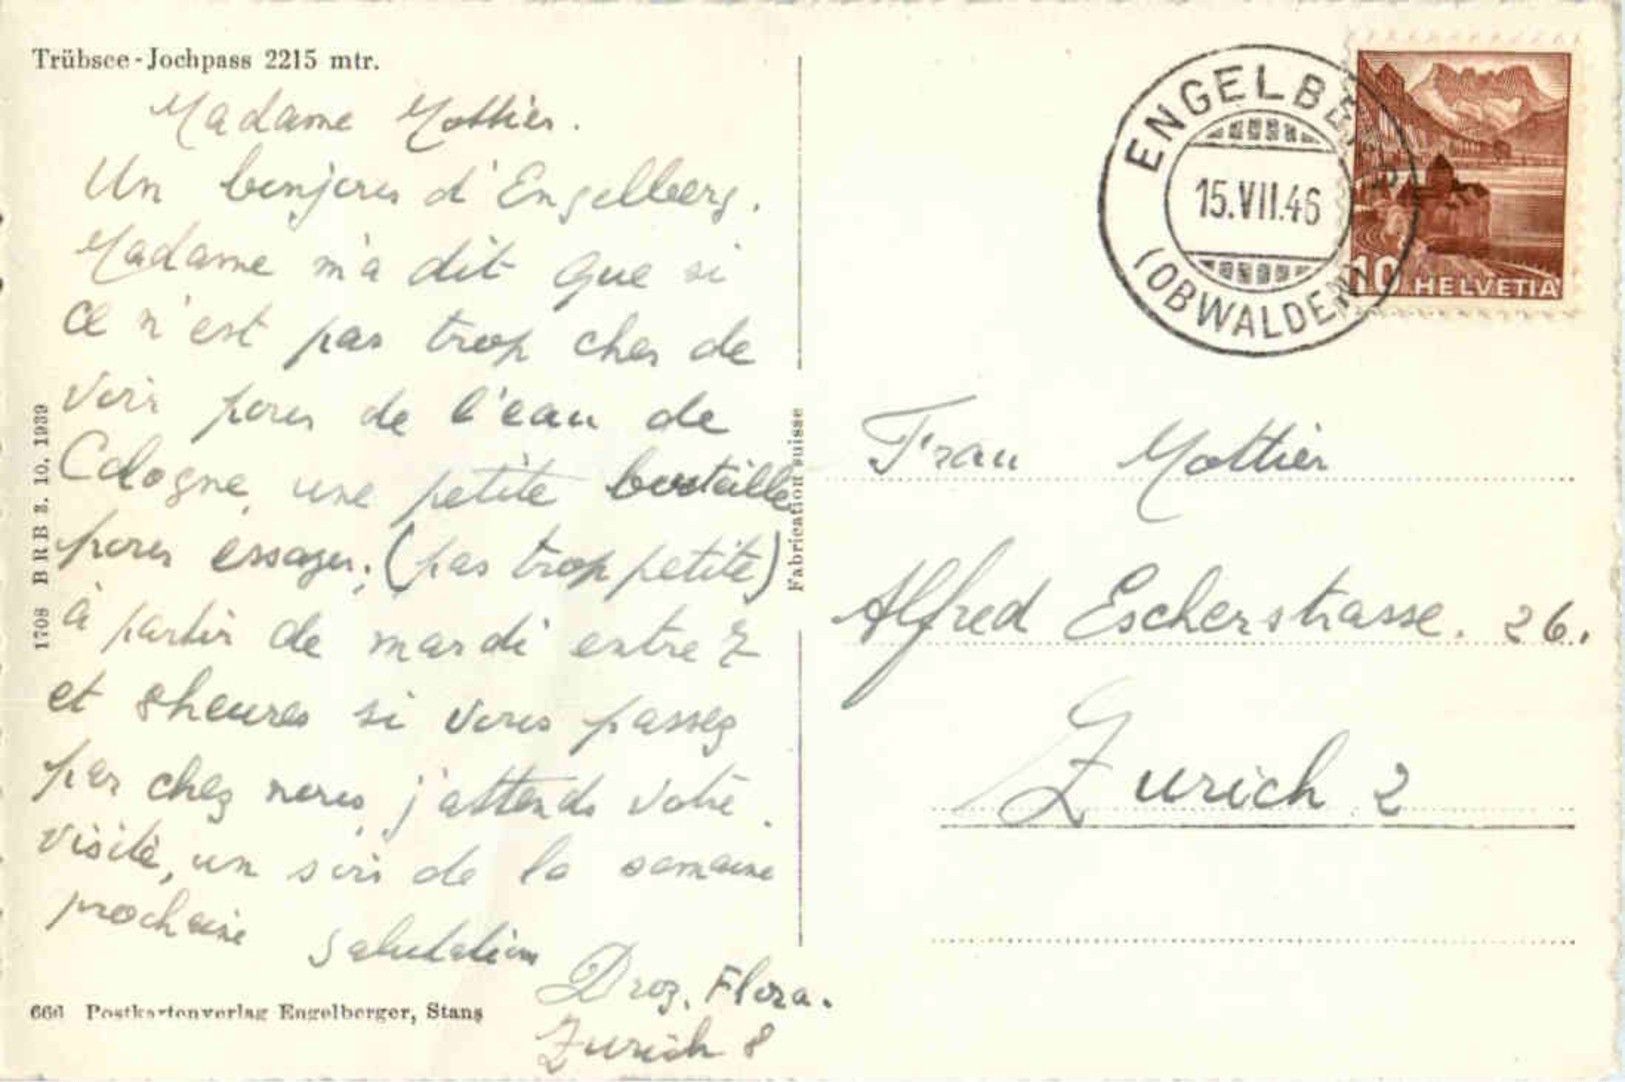 Trübsee-Jochpass 2215 mtr.
Madame Mottier.
Un bonjour d'Engelberg.
Madame m'a dit que si
ce n'est pas trop cher de
voir pour de l'eau de
Cologne, une petite bouteille
pour essayer. (pas trop petite)
à partir de mardi entre 7
et 8 heures si vous passez
par chez nous, j'attends votre
visite, un soir de la semaine
prochaine Salutation
Droz. Flora.
Zurich 8
660 Postkartenverlag Engelberger, Stans
1708 BRB 3. 10. 1939
Fabrication suisse
ENGELBERG
15.VII.46
(OBWALDEN)
10 HELVETIA
Frau Mottier
Alfred Escherstrasse. 26.
Zurich 2